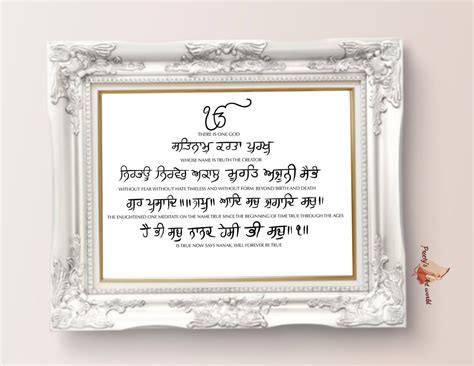 ੴ
THERE IS ONE GOD
ਸਤਿਨਾਮੁ ਕਰਤਾ ਪੁਰਖੁ
WHOSE NAME IS TRUTH THE CREATOR
ਨਿਰਭਉ ਨਿਰਵੈਰੁ ਅਕਾਲ ਮੂਰਤਿ ਅਜੂਨੀ ਸੈਭੰ
WITHOUT FEAR WITHOUT HATE TIMELESS AND WITHOUT FORM BEYOND BIRTH AND DEATH
ਗੁਰ ਪ੍ਰਸਾਦਿ॥ ॥ਜਪੁ॥ ਆਦਿ ਸਚੁ ਜੁਗਾਦਿ ਸਚੁ॥
THE ENLIGHTENED ONE MEDITATE ON THE NAME TRUE SINCE THE BEGINNING OF TIME TRUE THROUGH THE AGES
ਹੈ ਭੀ ਸਚੁ ਨਾਨਕ ਹੋਸੀ ਭੀ ਸਚੁ॥੧॥
IS TRUE NOW SAYS NANAK, WILL FOREVER BE TRUE